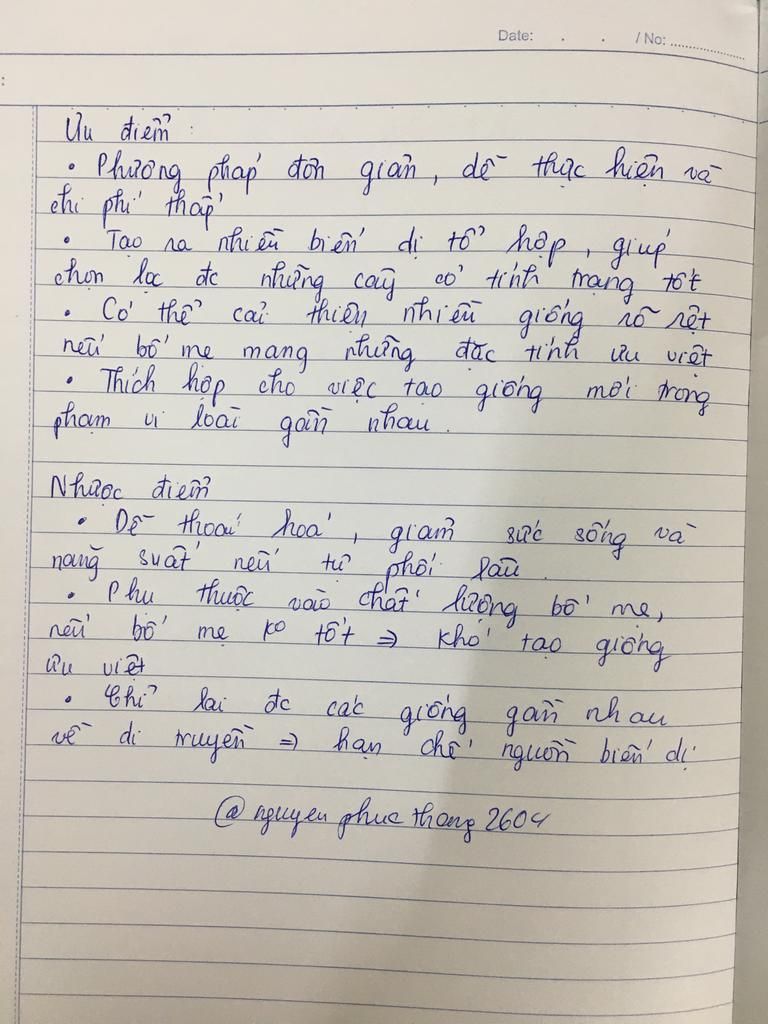 Date: . . / No: ....................
:
Ưu điểm :
• Phương pháp đơn giản, dễ thực hiện và
chi phí thấp
• Tạo ra nhiều biến dị tổ hợp, giúp
chọn lọc đc những cây có tính trạng tốt
• Có thể cải thiện nhiều giống rõ rệt
nếu bố mẹ mang những đặc tính ưu việt
• Thích hợp cho việc tạo giống mới trong
phạm vi loài gần nhau.
Nhược điểm
• Dễ thoái hoá, giảm sức sống và
năng suất nếu tự phối lâu.
• Phụ thuộc vào chất lượng bố mẹ,
nếu bố mẹ ko tốt ⇒ khó tạo giống
ưu việt
• Chỉ lai đc các giống gần nhau
về di truyền ⇒ hạn chế nguồn biến dị
@ nguyen phuc thang 2604